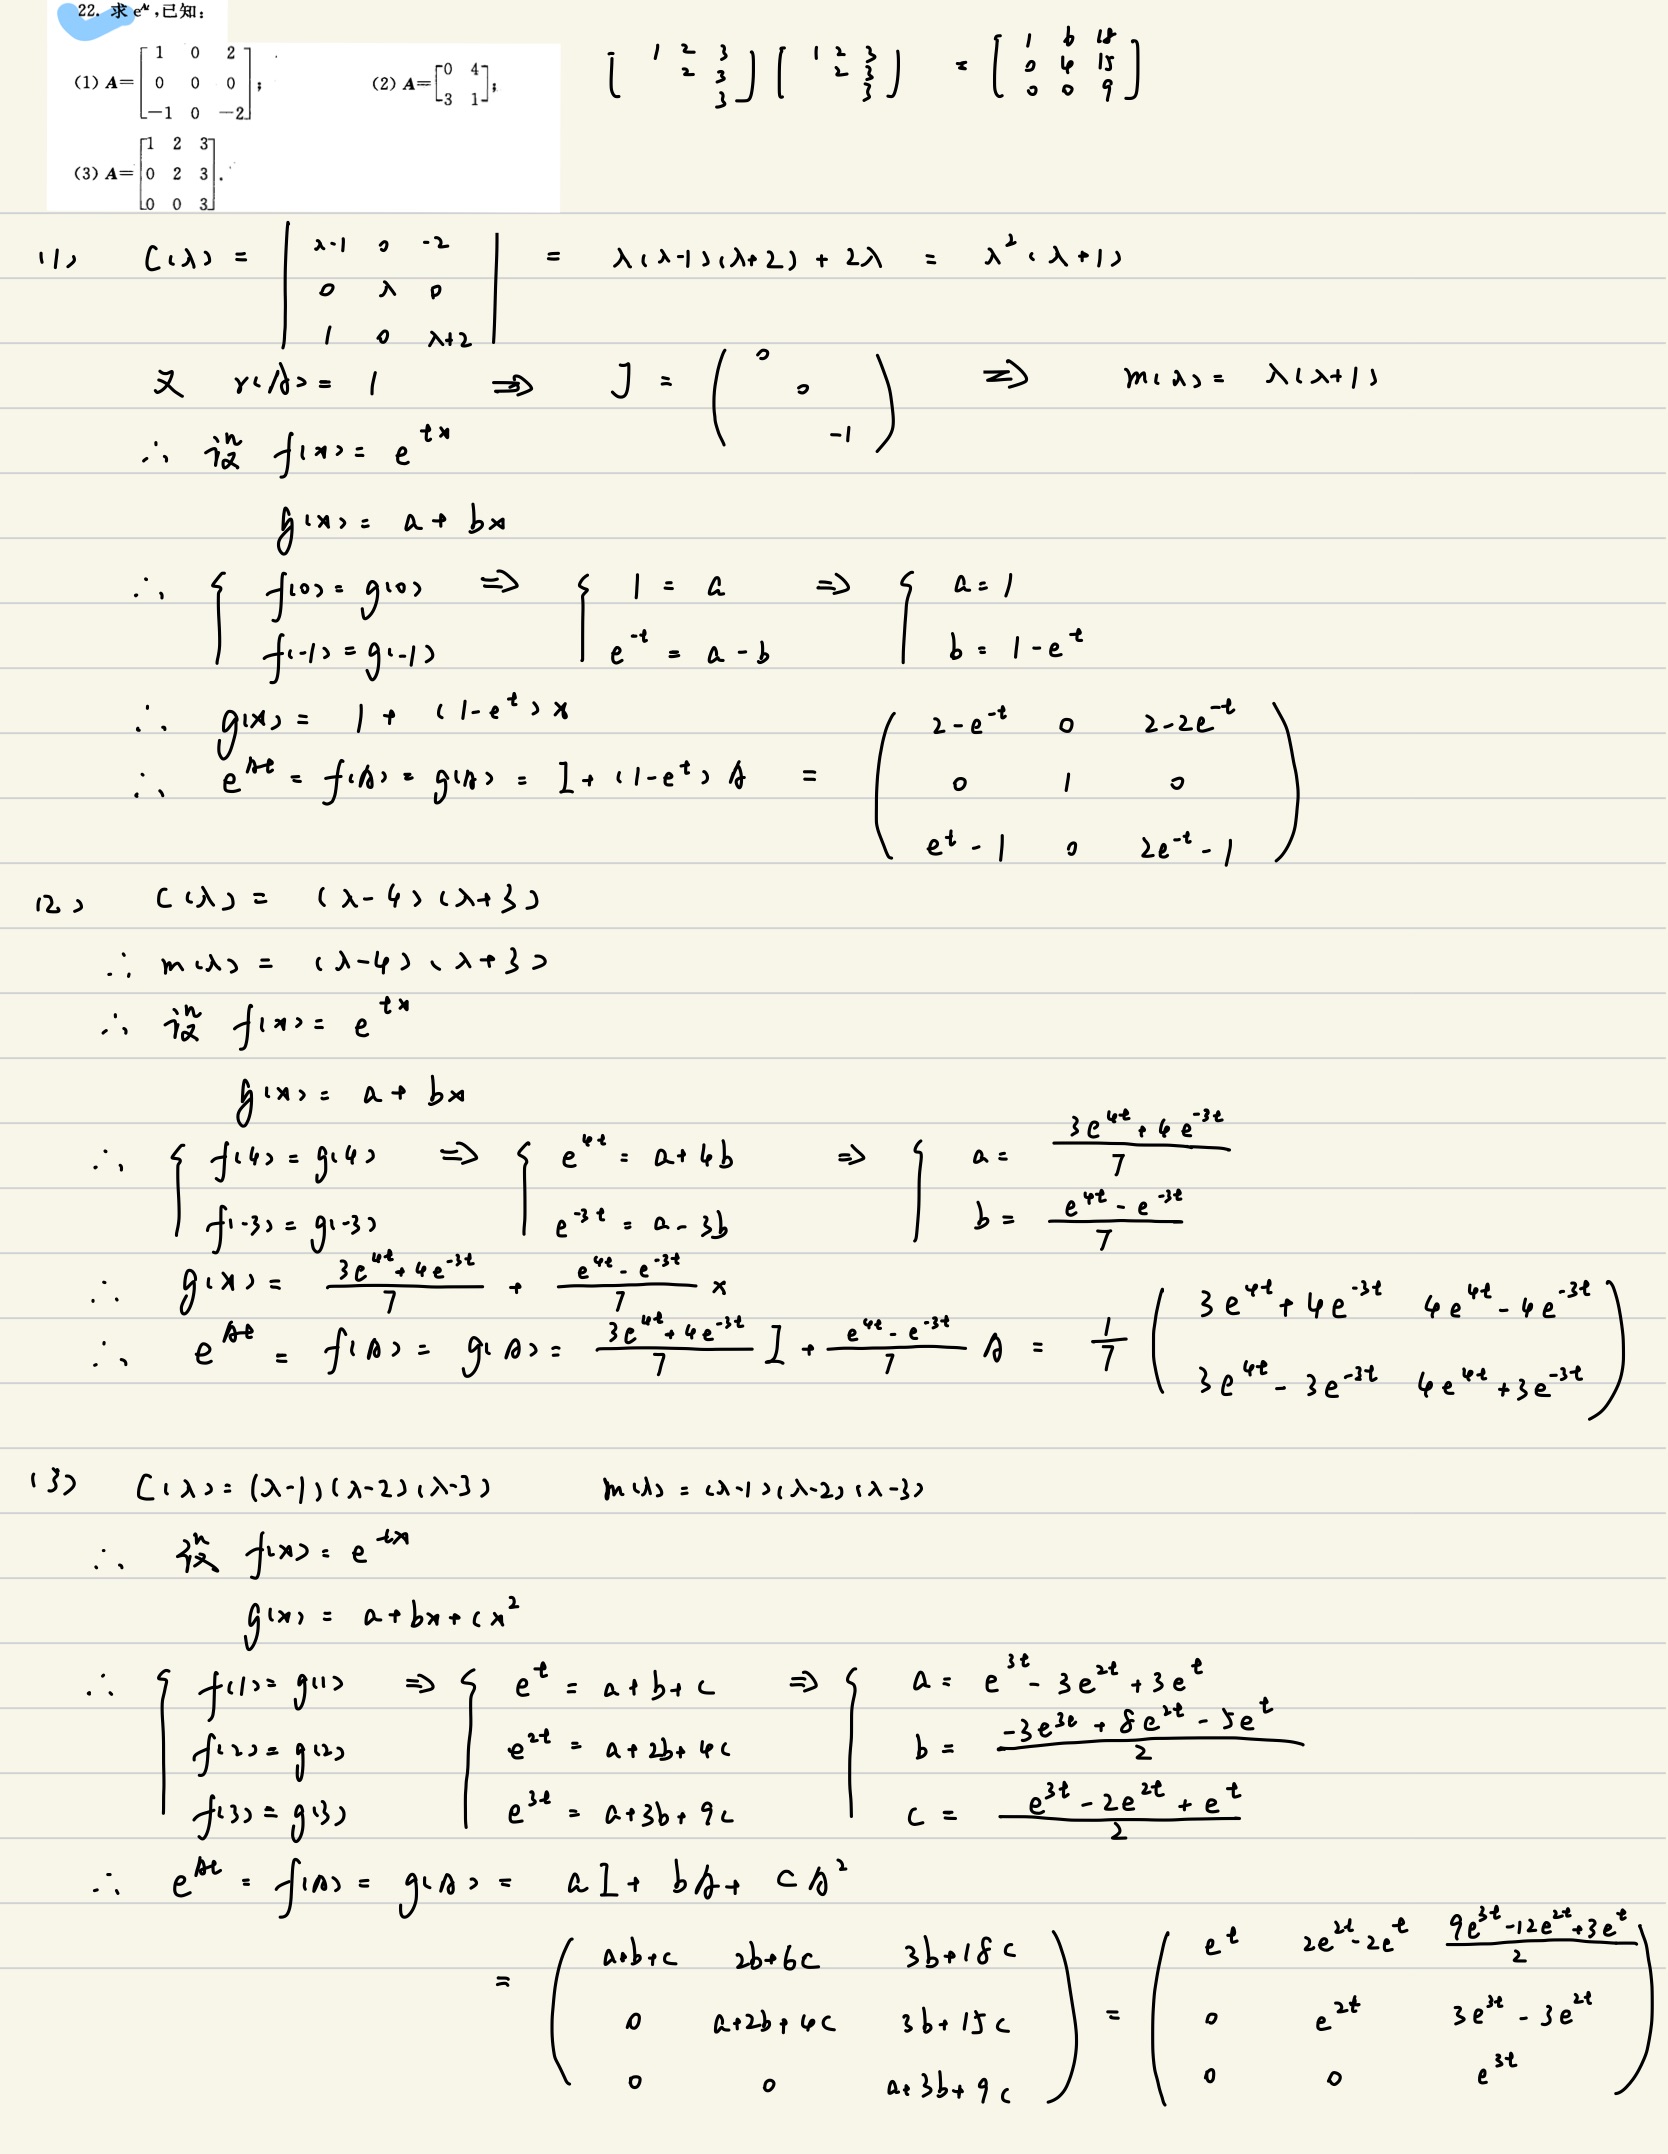 22. 求 e^{At},已知:
(1) A=[1 0 2; 0 0 0; -1 0 -2]; (2) A=[0 4; 3 1];
(3) A=[1 2 3; 0 2 3; 0 0 3].
[1 2 3; 2 3; 3] [1 2 3; 2 3; 3] = [1 6 18; 0 4 15; 0 0 9]
(1) C(λ) = |λ-1 0 -2; 0 λ 0; 1 0 λ+2| = λ(λ-1)(λ+2) + 2λ = λ²(λ+1)
又 r(A) = 1 ⇒ J = (0; 0; -1) ⇒ m(λ) = λ(λ+1)
∴ 设 f(x) = e^{tx}
g(x) = a + bx
∴ { f(0) = g(0) ⇒ { 1 = a ⇒ { a = 1
f(-1) = g(-1) e^{-t} = a - b b = 1 - e^{-t}
∴ g(x) = 1 + (1 - e^{t})x
∴ e^{At} = f(A) = g(A) = I + (1 - e^{t})A = (2-e^{-t} 0 2-2e^{-t}; 0 1 0; e^{t}-1 0 2e^{-t}-1)
(2) C(λ) = (λ-4)(λ+3)
∴ m(λ) = (λ-4)(λ+3)
∴ 设 f(x) = e^{tx}
g(x) = a + bx
∴ { f(4) = g(4) ⇒ { e^{4t} = a + 4b ⇒ { a = (3e^{4t} + 4e^{-3t})/7
f(-3) = g(-3) e^{-3t} = a - 3b b = (e^{4t} - e^{-3t})/7
∴ g(x) = (3e^{4t} + 4e^{-3t})/7 + (e^{4t} - e^{-3t})/7 x
∴ e^{At} = f(A) = g(A) = (3e^{4t} + 4e^{-3t})/7 I + (e^{4t} - e^{-3t})/7 A = 1/7 (3e^{4t}+4e^{-3t} 4e^{4t}-4e^{-3t}; 3e^{4t}-3e^{-3t} 4e^{4t}+3e^{-3t})
(3) C(λ) = (λ-1)(λ-2)(λ-3) m(λ) = (λ-1)(λ-2)(λ-3)
∴ 设 f(x) = e^{tx}
g(x) = a + bx + cx²
∴ { f(1) = g(1) ⇒ { e^{t} = a + b + c ⇒ { a = e^{3t} - 3e^{2t} + 3e^{t}
f(2) = g(2) e^{2t} = a + 2b + 4c b = (-3e^{3t} + 8e^{2t} - 5e^{t})/2
f(3) = g(3) e^{3t} = a + 3b + 9c c = (e^{3t} - 2e^{2t} + e^{t})/2
∴ e^{At} = f(A) = g(A) = aI + bA + cA²
= (a+b+c 2b+6c 3b+18c; 0 a+2b+4c 3b+15c; 0 0 a+3b+9c) = (e^{t} 2e^{2t}-2e^{t} (9e^{3t}-12e^{2t}+3e^{t})/2; 0 e^{2t} 3e^{3t}-3e^{2t}; 0 0 e^{3t})